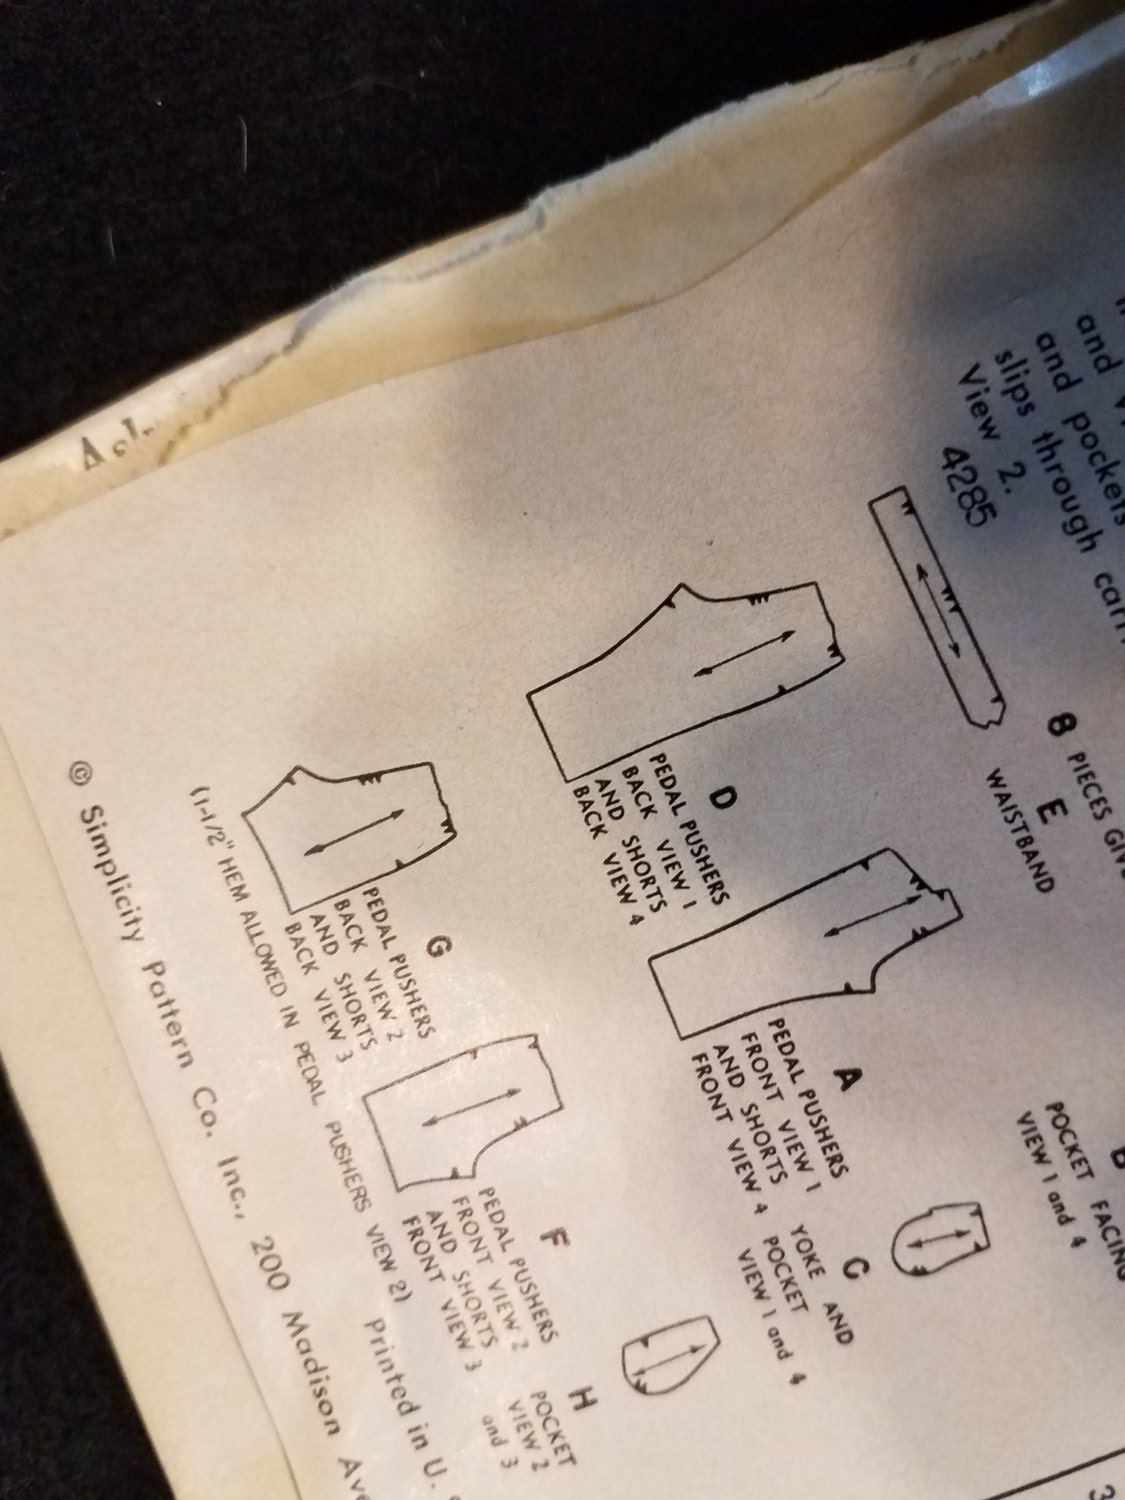 and
and pockets
slips through
View 2.
4285
8 PIECES
E
WAISTBAND
D
PEDAL PUSHERS
BACK VIEW 1
AND SHORTS
BACK VIEW 4
A
PEDAL PUSHERS
FRONT VIEW 1
AND SHORTS
FRONT VIEW 4
POCKET FACING
VIEW 1 and 4
C
YOKE AND
POCKET
VIEW 1 and 4
G
PEDAL PUSHERS
BACK VIEW 2
AND SHORTS
BACK VIEW 3
F
PEDAL PUSHERS
FRONT VIEW 2
AND SHORTS
FRONT VIEW 3
H
POCKET
VIEW 2
and 3
(1-1/2" HEM ALLOWED IN PEDAL PUSHERS VIEW 2)
© Simplicity Pattern Co. Inc., 200 Madison
Printed in U.